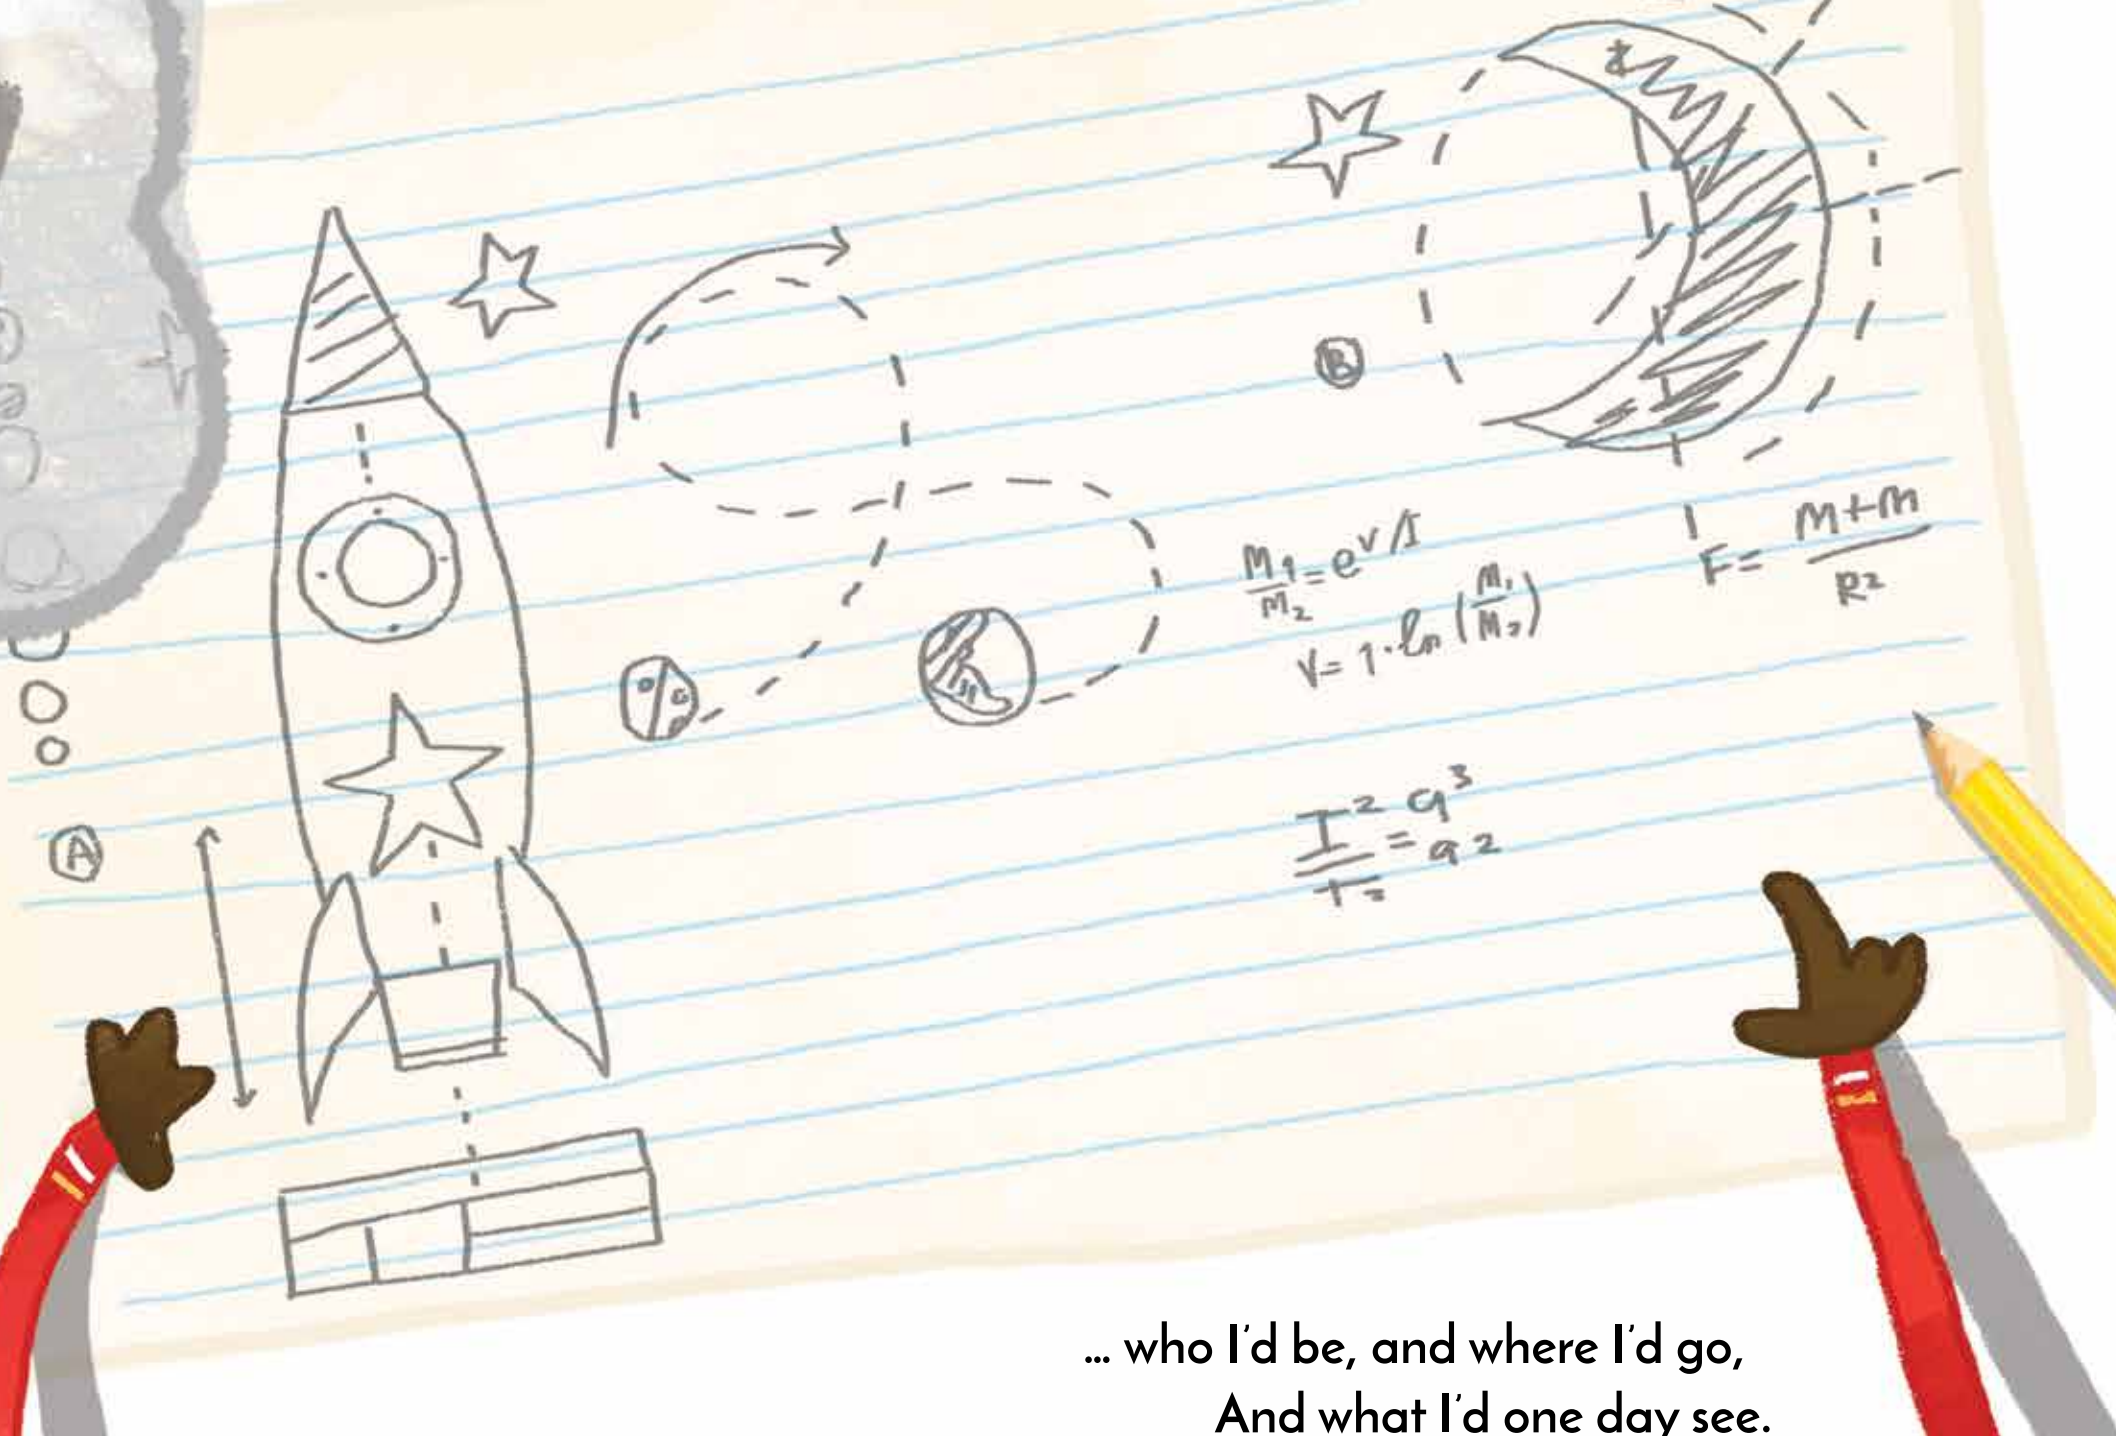 B
M1/M2 = e^V/I
V = 1 · ln (M1/M2)
F = M+M/R2
A
I² a³
= a2
T=
... who I'd be, and where I'd go,
And what I'd one day see.